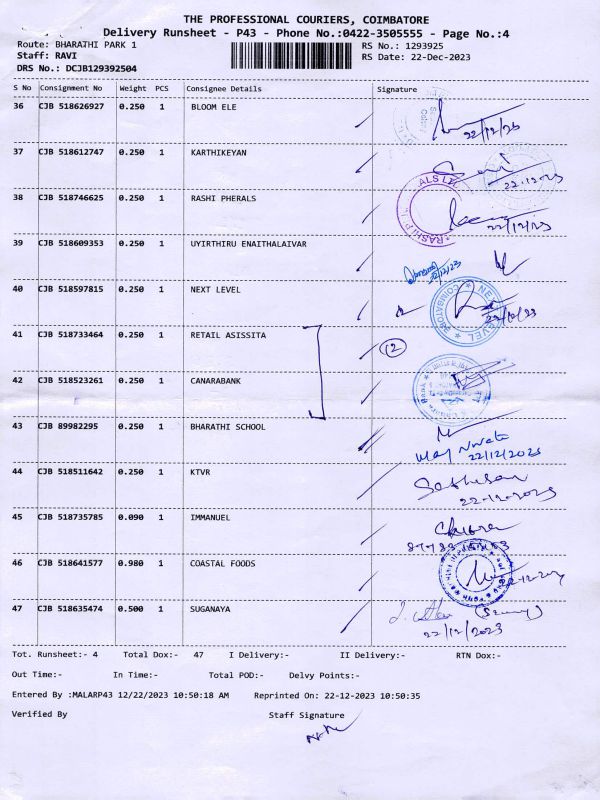 THE PROFESSIONAL COURIERS, COIMBATORE
Delivery Runsheet - P43 - Phone No.:0422-3505555 - Page No.:4
Route: BHARATHI PARK 1 RS No.: 1293925
Staff: RAVI RS Date: 22-Dec-2023
DRS No.: DCJB129392504
S No Consignment No Weight PCS Consignee Details Signature
36 CJB 518626927 0.250 1 BLOOM ELE
22/12/23
37 CJB 518612747 0.250 1 KARTHIKEYAN
22.12.23
38 CJB 518746625 0.250 1 RASHI PHERALS
22/12/23
39 CJB 518609353 0.250 1 UYIRTHIRU ENAITHALAIVAR
22/12/23
40 CJB 518597815 0.250 1 NEXT LEVEL
NEXT LEVEL COIMBATORE
22/12/23
41 CJB 518733464 0.250 1 RETAIL ASISSITA
2
42 CJB 518523261 0.250 1 CANARABANK
43 CJB 89982295 0.250 1 BHARATHI SCHOOL
22/12/2023
44 CJB 518511642 0.250 1 KTVR
22-12-2023
45 CJB 518735785 0.090 1 IMMANUEL
46 CJB 518641577 0.980 1 COASTAL FOODS
47 CJB 518635474 0.500 1 SUGANAYA
22/12/2023
Tot. Runsheet:- 4 Total Dox:- 47 I Delivery:- II Delivery:- RTN Dox:-
Out Time:- In Time:- Total POD:- Delvy Points:-
Entered By :MALARP43 12/22/2023 10:50:18 AM Reprinted On: 22-12-2023 10:50:35
Verified By Staff Signature